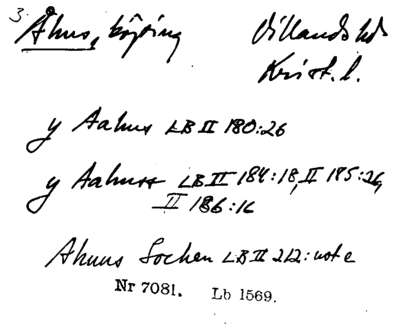 3.
Åhus, köping Villands hd
Krist. l.
y Aahus LB II 180:26
y Aahuss LB II 184:18, II 185:26,
II 186:16
Ahuus Sochen LB II 212: note
Nr 7081. Lb 1569.